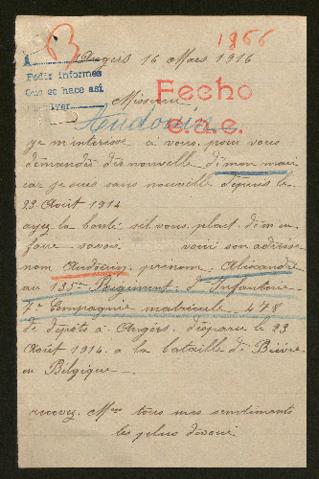 1966
Angers 16 Mars 1916
A
Pedir informes
Que se hace así
Fecho
e.a.e.
Monsieur
Audouin
je m'interesse à vous pour vous
demandés des nouvelle de mon mari
car je suis sans nouvelle depuis le
23 Août 1914
ayez la bonté s'il vous plait d'men
faire savoir voici son adresse
nom Audouin prénom Alixandre
au 135e Régiment d'Infanterie
7e Compagnie matricule 478
de dépôts a Angers disparu le 23
Août 1914 a la bataille de Bièvre
en Belgique
recevez Mr tous mes sentiments
les plus dévoué